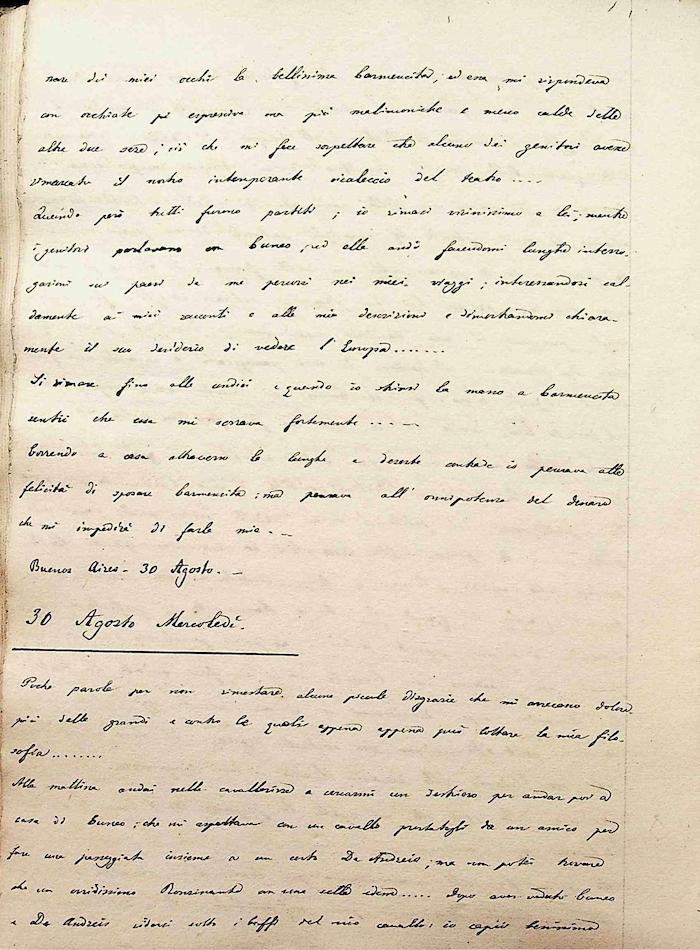 nare dei miei occhi la bellissima Carmencita, ed essa mi rispondeva
con occhiate più espressive ma più malinconiche e meno calde delle
altre due sere; ciò che mi fece sospettare che alcuno dei genitori avesse
rimarcato il nostro intemperante vicaleccio del teatro....
Quando però tutti furono partiti; io rimasi vicinissimo a lei; mentre
i genitori parlavano con Cuneo, ed ella andò facendomi lunghe interro-
gazioni sui paesi da me percorsi nei miei viaggi; interessandosi cal-
damente ai miei racconti e alle mie descrizioni e dimostrandomi chiara-
mente il suo desiderio di vedere l'Europa.......
Si rimase fino alle undici e quando io strinsi la mano a Carmencita
sentii che essa mi serrava fortemente.....
Correndo a casa attraverso le lunghe e deserte contrade io pensava alla
felicità di sposare Carmencita; ma pensava all'onnipotenza del denaro
che mi impedirà di farla mia...
Buenos Aires - 30 Agosto. -
30 Agosto Mercoledì.
Poche parole per non rimestare alcune piccole disgrazie che mi arrecano dolore
più delle grandi e contro le quali appena appena può lottare la mia filo-
sofia........
Alla mattina andai nella cavallerizza a cercarmi un destriero per andar poi a
casa di Cuneo; che mi aspettava con un cavallo prestatogli da un amico per
fare una passeggiata insieme a un certo De Andreis; ma non potei trovare
che un orridissimo Ronzinante con una sella idem..... Dopo aver veduto Cuneo
e De Andreis ridersi sotto i baffi del mio cavallo; io capii benissimo